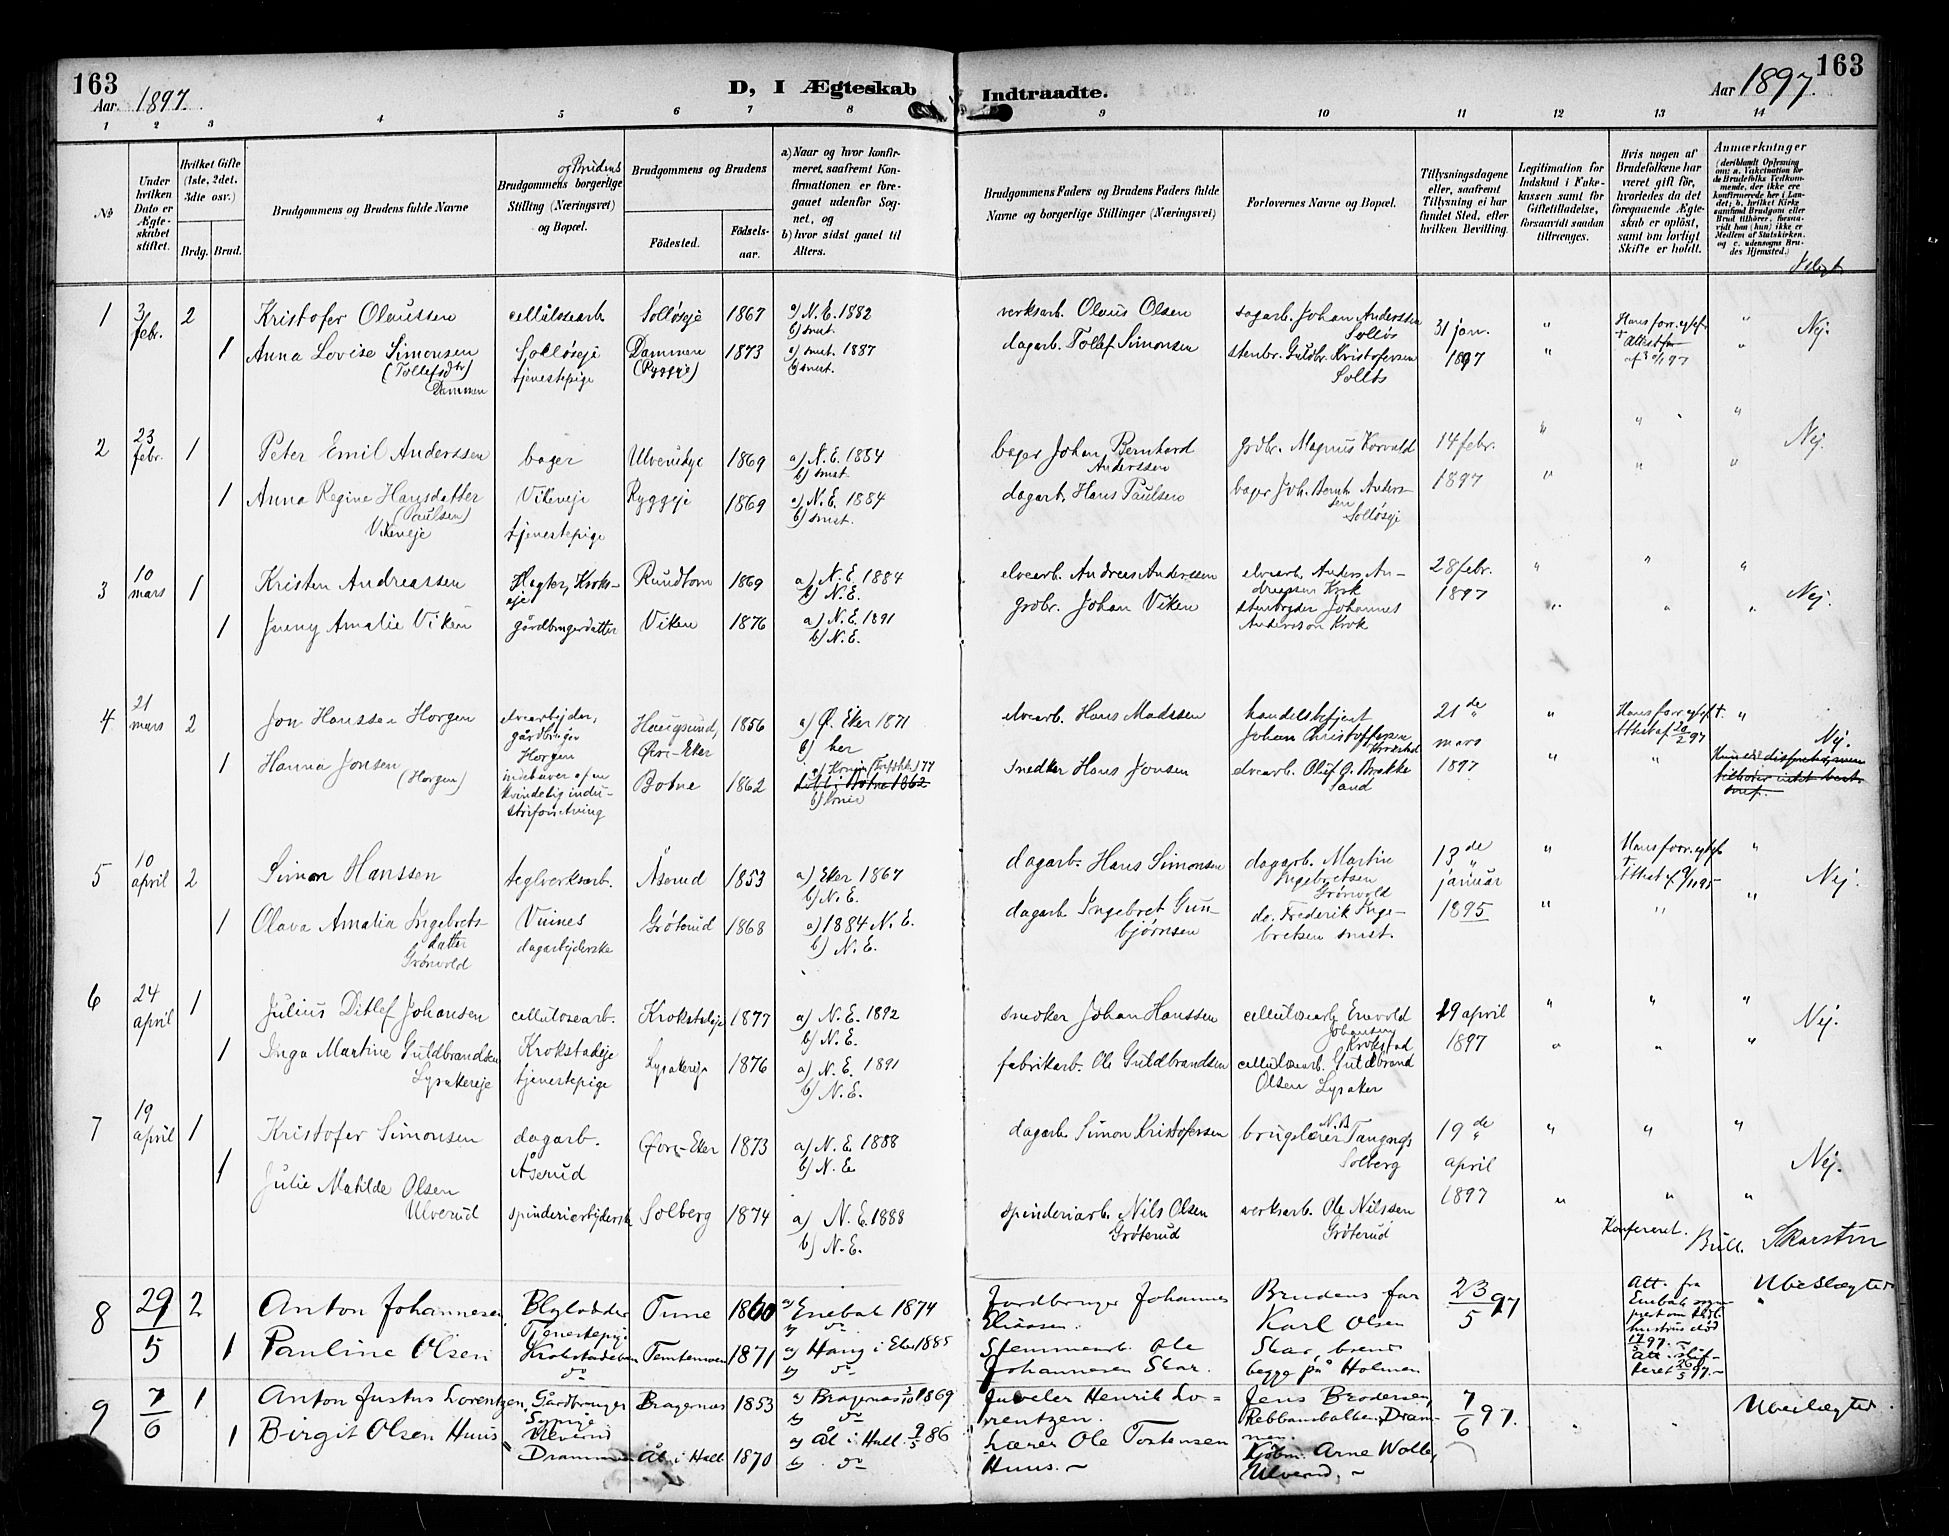 163
Aar 1897.
D, I Ægteskab Indtraadte.
Aar 1897.
163
1 2 3 4 5 6 7 8 9 10 11 12 13 14
No
Under hvilken Dato er Ægteskabet stiftet.
Hvilket Gifte (1ste, 2det, 3die osv.)
Brdg. Brud.
Brudgommens og Brudens fulde Navne
og Brudens
Brudgommens borgerlige Stilling (Næringsvei) og Bopæl.
Brudgommens og Brudens
Fødested.
Fødselsaar.
a) Naar og hvor konfirmeret, saafremt Konfirmationen er foregaaet udenfor Sognet, og
b) hvor sidst gaaet til Alters.
Brudgommens Faders og Brudens Faders fulde Navne og borgerlige Stillinger (Næringsvei)
Forlovernes Navne og Bopæl.
Tillysningsdagene eller, saafremt Tillysning ei har fundet Sted, efter hvilken Bevilling.
Legitimation for Indskud i Enkekassen samt for Giftetilladelse, forsaavidt saadan tiltrænges.
Hvis nogen af Brudefolkene har været gift før, hvorledes da det foregaaende Ægteskab er opløst, samt om lovligt Skifte er holdt.
Anmærkninger (deriblandt Oplysning om: a. Vakcination for de Brudefolks Vedkommende, der ikke ere konfirmerede her i Landet; b. hvilket Kirkesamfund Brudgom eller Brud tilhører, forsaavidt han (hun) ikke er Medlem af Statskirken, og c. udensogns Brudes Hjemsted.)
1 3/ febr. 2 Kristofer Olaussen cellulosearb. Solløseje 1867 a) N.E. 1882 b) smst. verksarb. Olaus Olsen sagarb. Johan Anderssen Solløs 31 jan. " Hans forr. egtef. † Attest " Nej
1 Anna Lovise Simonsen (Tollefsdtr) Dammen Solløseje tjenestepige Dammen (Ryggeje) 1873 a) smst. 1887 b) smst. dagarb. Tollef Simonsen stenbr. Guldbr. Kristofersen Solløs 1897 " "
2 23 febr. 1 Peter Emil Anderssen bager Ulverudeje 1869 a) N.E. 1884 b) smst. bager Johan Bernhard Anderssen grdbr. Magnus Korvald 14 febr. " " " Nej.
1 Anna Regine Hansdatter (Paulsen) Vikeneje Vikeneje tjenestepige Ryggeje 1869 a) N.E. 1884 b) smst. dagarb. Hans Paulsen bager Joh. Bernh. Anderssen Solløseje 1897 " " "
3 10 mars 1 Kristen Andreassen Krokseje Rundtom 1869 a) N.E. 1884 b) N.E. elvearb. Andreas Anderssen elvearb. Anders Andreassen Krok 28 febr. " " " Nej.
1 Jenny Amalie Viken gårdbrugerdatter Viken 1876 a) N.E. 1891 b) N.E. grdbr. Johan Viken stenbryder Johannes Andersson Krok 1897 " " "
4 21 mars 2 Jon Hanssen Horgen elvearbejder, gårdbruger Horgen Haugsund, Øvre-Eker 1856 a) Ø. Eker 1871 b) her elvearb. Hans Madssen handelsbetjent Johan Christoffersen Krokstad 21de mars " Hans forr. egtef. †. Attest af 20/2 97 " Nej.
1 Hanna Jonsen (Horgen) indehaver af en kvindelig industriforretning Botne 1862 b) snedker Hans Jonsen elvearb. Oluf G. Brekke Sand 1897 " "
5 10 april 2 Simon Hanssen teglverksarb. Åserud 1853 a) Eker 1867 b) N.E. dagarb. Hans Simonsen dagarb. Martin Ingebretsen Grønvold 13de januar " Hans forr. egtef. † Attest " Nej.
1 Olava Amalia Ingebretsdatter Grønvold Vuines dagarbejderske Grøterud 1868 a) 1884 N.E. b) N.E. dagarb. Ingebret Gunbjørnsen do. Frederik Ingebretsen smst. 1895 " " "
6 24 april 1 Julius Ditlef Johansen cellulosearb. Krokstadeje 1877 a) N.E. 1892 b) N.E. snedker Johan Hanssen cellulosearb. Enevold Johansen Krokstad 19 april " " " Nej.
1 Inga Martine Guldbrandsen Lysakereje Krokstadeje tjenestepige Lysakereje 1876 a) N.E. 1891 b) N.E. fabrikarb. Ole Guldbrandsen cellulosearb. Guldbrand Olsen Lysaker 1897 " " "
7 19 april 1 Kristofer Simonsen dagarb. Åserud Øvre-Eker 1873 a) N.E. 1888 b) N.E. dagarb. Simon Kristofersen N.B. Solberg 19de april " " " Nej.
1 Julie Matilde Olsen Ulverud spinderiarbejderske Solberg 1874 a) N.E. 1888 b) N.E. spinderiarb. Nils Olsen Grøterud verksarb. Ole Nilssen Grøterud 1897 " " "
Konfereret. Bull. Skarsten
8 29/5 2 Anton Johannesen Tune 1860 a) Enebak 1874 b) do Jordbruger Johannes Eliassen. Brudens far Karl Olsen 23/5 97 Att. fra Enebak Ubeslægtede
1 Pauline Olsen Tjenestepige do Temtemoen 1871 a) Haug i Eker 1885 b) do Ole Johannesen Skar. Skar, begge på Holmen Att. 26/5 97.
9 7/6 1 Anton Justus Lorentzen, Gårdbruger Ulverud Bragernæs 1853 a) Bragernæs 3/10 1869 b) do Juveler Henrik Lorentzen. Jens Brodersen, Drammen. 7/6 97. Ubeslægtede.
1 Birgit Olsen Huus Drammen Ål i Hall. 1870 a) Ål i Hall. 9/5 86 b) do Lærer Ole Torstensen Huus. Kjøbm. Arne Wolle, Ulverud.